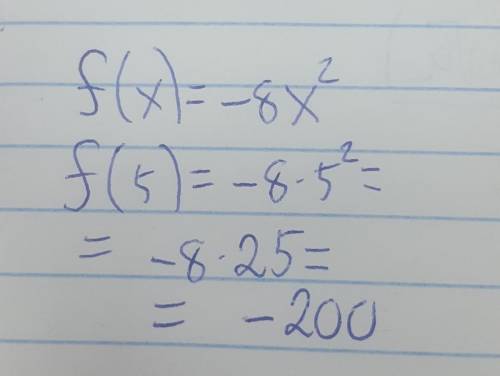 f(x) = -8x²
f(5) = -8·5² =
= -8·25 =
= -200